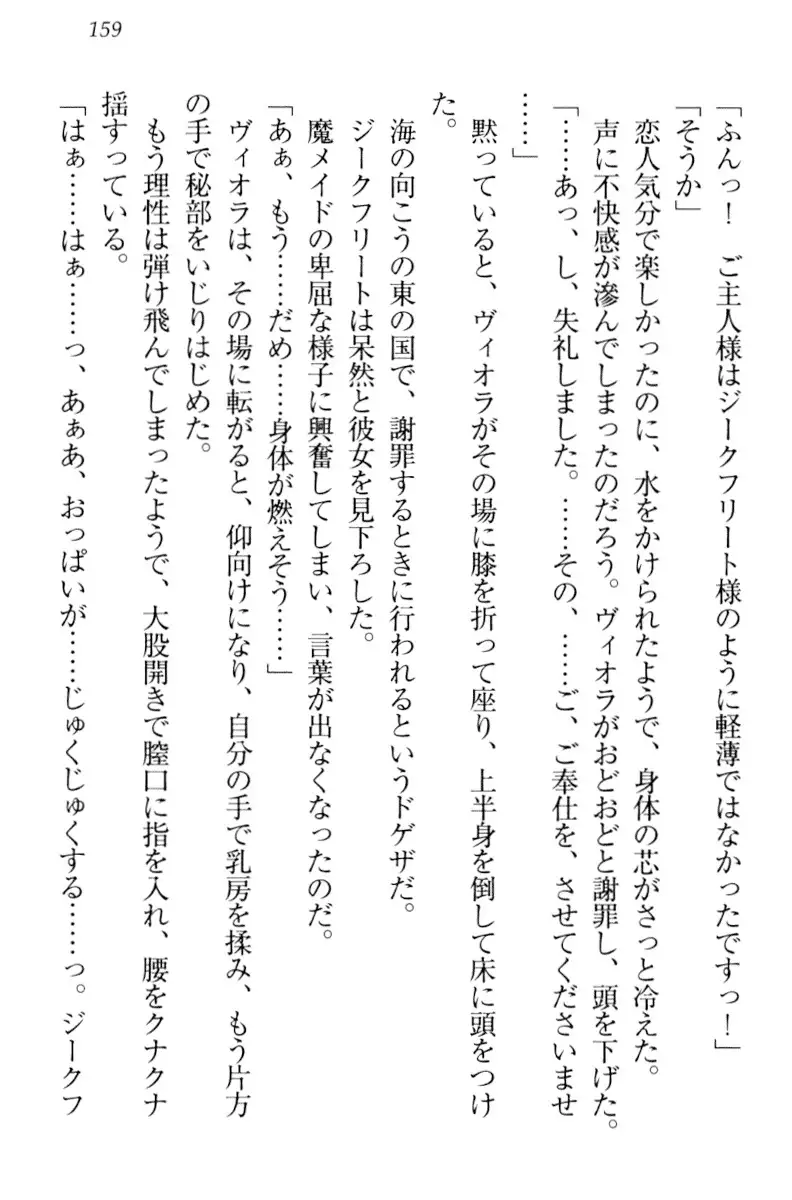 159
「ふんっ！　ご主人様はジークフリート様のように軽薄ではなかったですっ！」
「そうか」
恋人気分で楽しかったのに、水をかけられたようで、身体の芯がさっと冷えた。
声に不快感が滲んでしまったのだろう。ヴィオラがおどおどと謝罪し、頭を下げた。
「……あっ、し、失礼しました。……その、……ご、ご奉仕を、させてくださいませ
……」
黙っていると、ヴィオラがその場に膝を折って座り、上半身を倒して床に頭をつけ
た。
海の向こうの東の国で、謝罪するときに行われるというドゲザだ。
ジークフリートは呆然と彼女を見下ろした。
魔メイドの卑屈な様子に興奮してしまい、言葉が出なくなったのだ。
「あぁ、もう……だめ……身体が燃えそう……」
ヴィオラは、その場に転がると、仰向けになり、自分の手で乳房を揉み、もう片方
の手で秘部をいじりはじめた。
もう理性は弾け飛んでしまったようで、大股開きで膣口に指を入れ、腰をクナクナ
揺すっている。
「はぁ……はぁ……っ、あぁあ、おっぱいが……じゅくじゅくする……っ。ジークフ